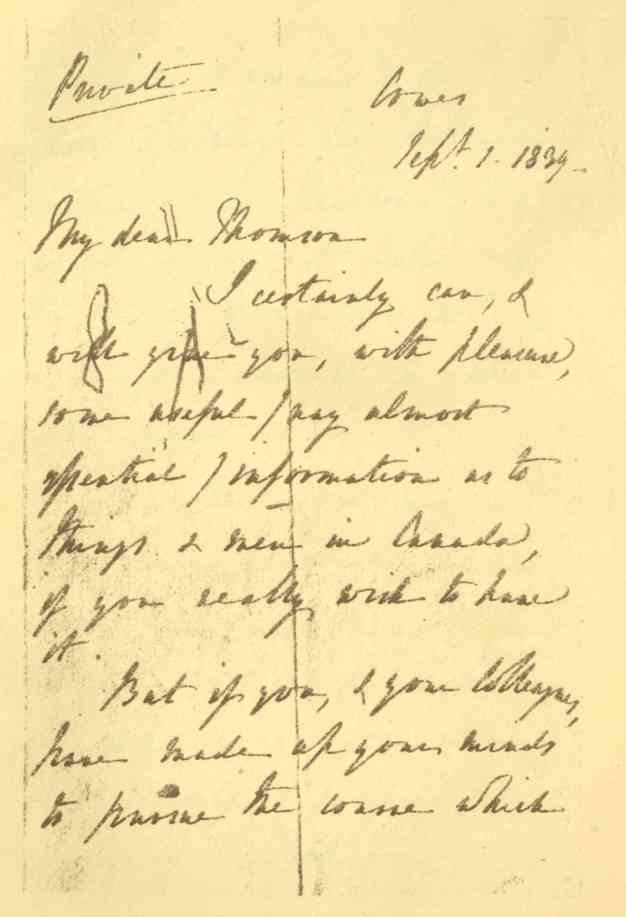 Private
Cowes
Sept. 1. 1839.
My dear Thomson
I certainly can, &
will give you, with pleasure,
some useful / nay almost
essential / information as to
things & men in Canada,
if you really wish to have
it.
But if you, & your Colleagues,
have made up your minds
to pursue the course which